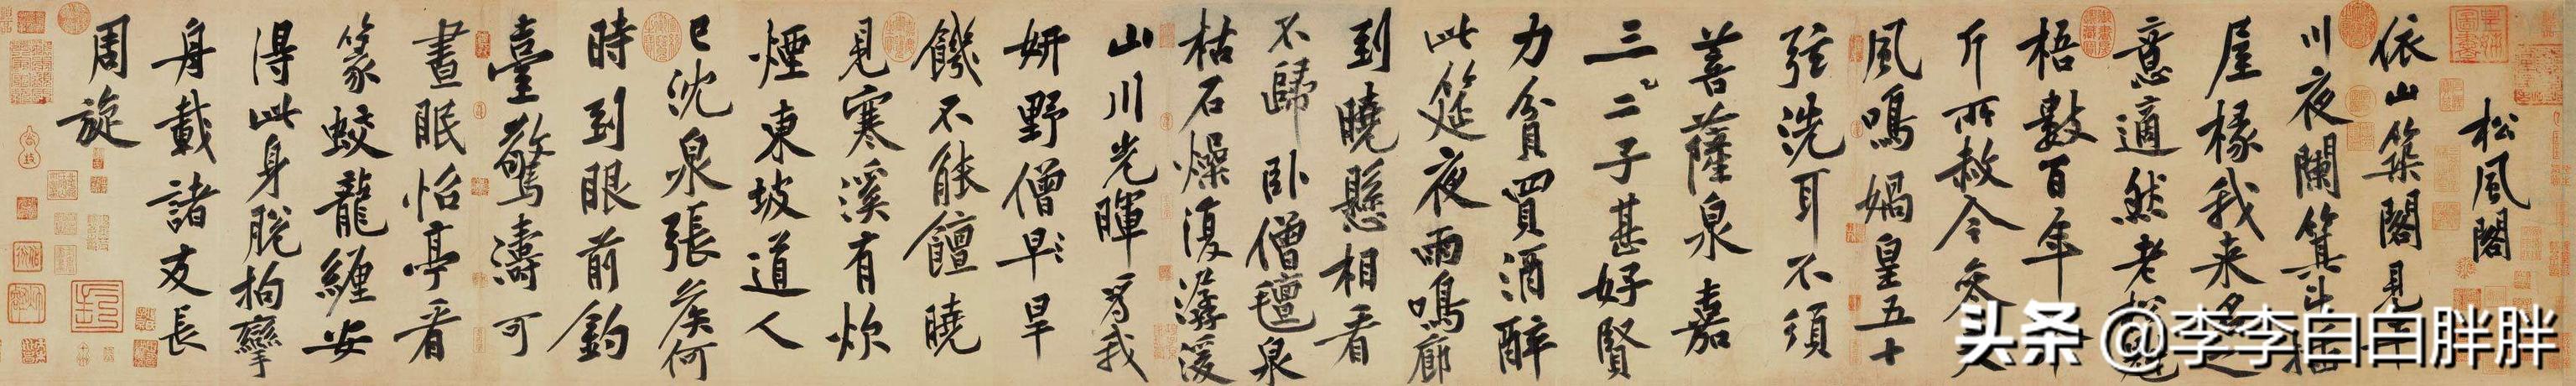 松風閣
依山築閣見
川夜闌箕斗插
屋椽我来名之
意適然老松魁
梧數百年
斤所赦今参天
風鳴媧皇五十
弦洗耳不須
菩薩泉嘉
三二子甚好賢
力貧買酒醉
此筵夜雨鳴廊
到曉懸相看
不歸卧僧氊泉
枯石燥復潺湲
山川光暉為我
妍野僧早旱
饑不能饘曉
見寒溪有炊
煙東坡道人
已沈泉張侯何
時到眼前釣
臺驚濤可
晝眠怡亭看
篆蛟龍纏安
得此身脫拘攣
舟載諸友長
周旋
头条 @李李白白胖胖